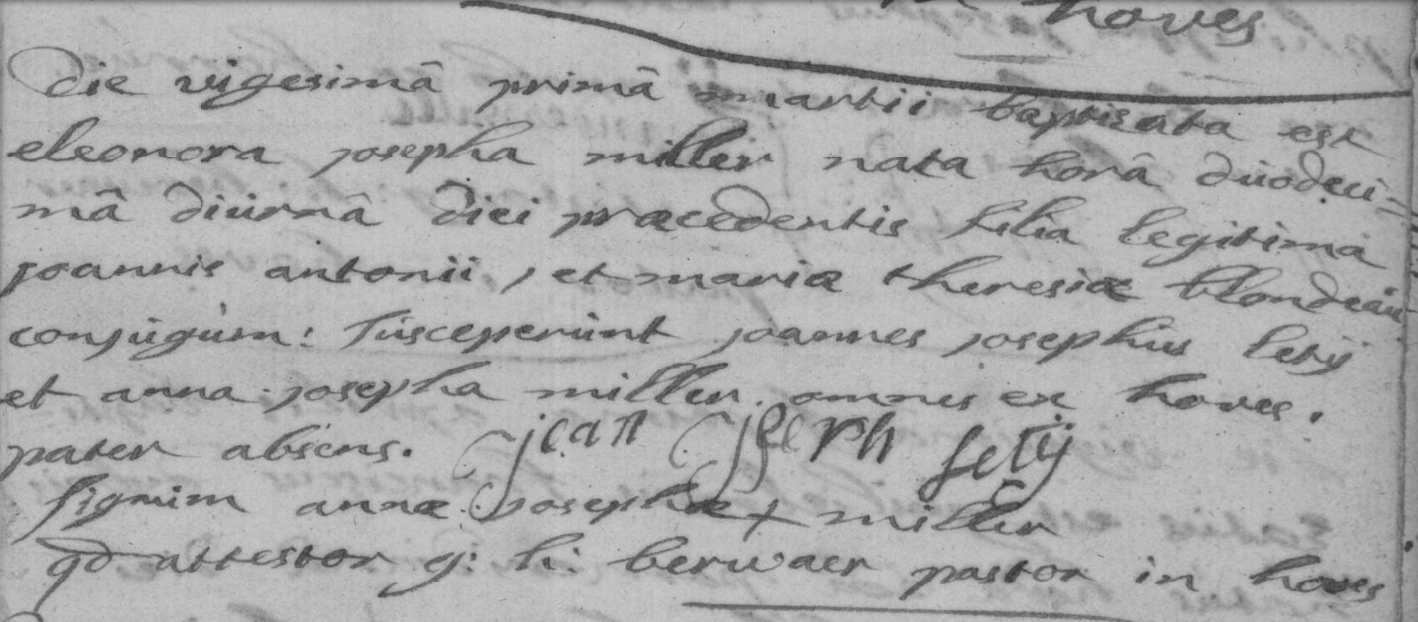 hoves
Die vigesimâ primâ martii baptisata est
eleonora josepha miller nata horâ duodeci=
mâ diurnâ diei præcedentis filia legitima
joannis antonii, et mariæ theresiæ blondeau
conjugum: susceperunt joannes josephus letij
et anna josepha miller. omnes ex hoves.
pater absens. jean joseph letij
signum annæ josephæ + miller
qd attestor g: h: berwaer pastor in hoves